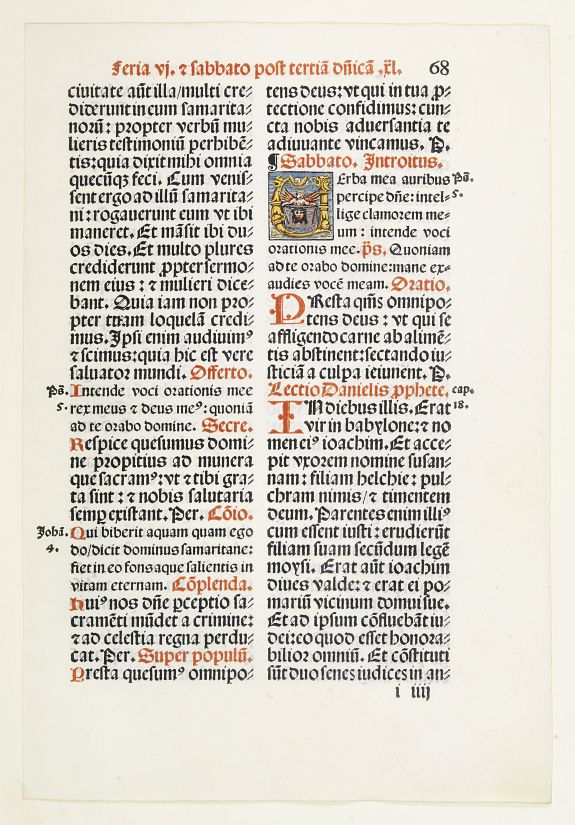 Feria vj. ⁊ sabbato post tertiā dñicā .xl. 68
ciuitate aūt illa/multi cre⸗
diderunt in eum samarita⸗
norū: propter verbū mu⸗
lieris testimoniū perhibē⸗
tis: quia dixit mihi omnia
quecūqꝫ feci. Cum venis⸗
sent ergo ad illū samarita⸗
ni: rogauerunt eum vt ibi
maneret. Et māsit ibi du⸗
os dies. Et multo plures
crediderunt ꝓpter sermo⸗
nem eius: ⁊ mulieri dice⸗
bant. Quia iam non pro⸗
pter tuam loquelā credi⸗
mus. Ipsi enim audiuimꝰ
⁊ scimus: quia hic est vere
saluator mundi. Offerto.
Ps̄. Intende voci orationis mee
5. rex meus ⁊ deus meꝰ: quoniā
ad te orabo domine. Secre.
Respice quesumus domi⸗
ne propitius ad munera
que sacramꝰ: vt ⁊ tibi gra⸗
ta sint: ⁊ nobis salutaria
semꝑ existant. Per. Cōio.
Johā. Qui biberit aquam quam ego
4. do/dicit dominus samaritane:
fiet in eo fons aque salientis in
vitam eternam. Cōplenda.
Huiꝰ nos dñe ꝑceptio sa⸗
cramēti mūdet a crimine:
⁊ ad celestia regna perdu⸗
cat. Per. Super populū.
Presta quesumꝰ omnipo⸗
tens deus: vt qui in tua ꝓ⸗
tectione confidimus: cun⸗
cta nobis aduersantia te
adiuuante vincamus. P.
¶ Sabbato. Introitus.
Erba mea auribus Ps̄.
percipe dñe: intel⸗ 5.
lige clamorem me⸗
um: intende voci
orationis mee. ps̄. Quoniam
ad te orabo domine: mane ex⸗
audies vocē meam. Oratio.
PResta qm̄s omnipo⸗
tens deus: vt qui se
affligendo carne ab alimē⸗
tis abstinent: sectando iu⸗
sticiā a culpa ieiunent. P.
Lectio Danielis ꝓphete. cap.
IN diebus illis. Erat 18.
vir in babylone: ⁊ no
men eiꝰ ioachim. Et acce⸗
pit vxorem nomine susan⸗
nam: filiam helchie: pul⸗
chram nimis/⁊ timentem
deum. Parentes enim illiꝰ
cum essent iusti: erudierūt
filiam suam secūdum legē
moysi. Erat aūt ioachim
diues valde: ⁊ erat ei po⸗
mariū vicinum domui sue.
Et ad ipsum cōfluebāt iu⸗
dei: eo quod esset honora⸗
bilior omniū. Et cōstituti
sūt duo senes iudices in an⸗
i iiij